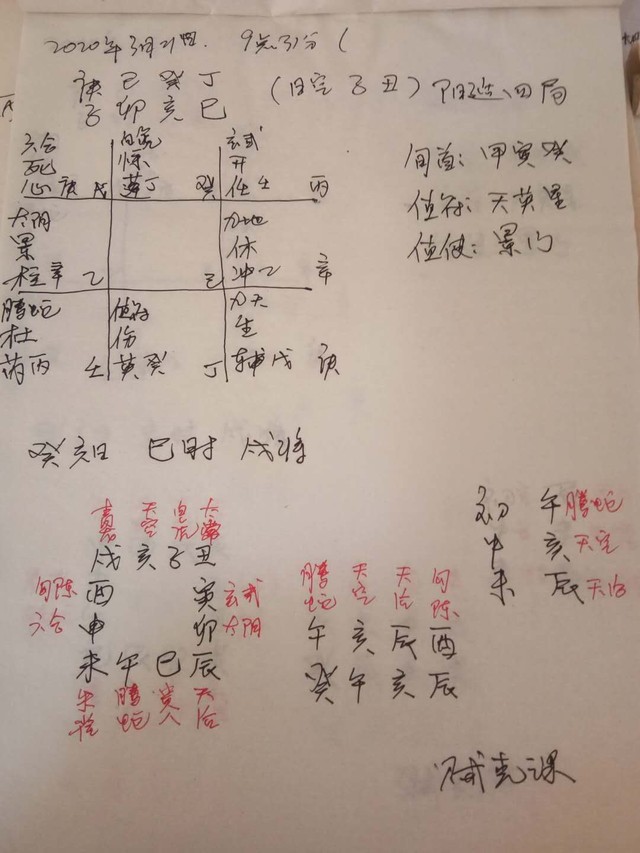 2020年3月21日. 9点31分 (
庚己癸丁 (日空子丑) 阳遁四局
子卯亥巳
六合 白虎 玄武
死 惊 开
心庚 戊 蓬丁 癸 任壬 丙
太阴 九地
景 休
柱辛 乙 己 冲乙 辛
腾蛇 值符 九天
杜 伤 生
芮丙 壬 英癸 丁 辅戊 庚
旬首: 甲寅癸
值符: 天英星
值使: 景门
癸亥日 巳时 戌将
青龙 天空 白虎 太常
戌亥子丑
勾陈 酉 寅 玄武
六合 申 卯 太阴
未午巳辰
朱雀 腾蛇 贵人 天后
腾蛇 天空 天后 勾陈
午亥辰酉
癸午亥辰
初 午 腾蛇
中 亥 天空
末 辰 天后
贼克课